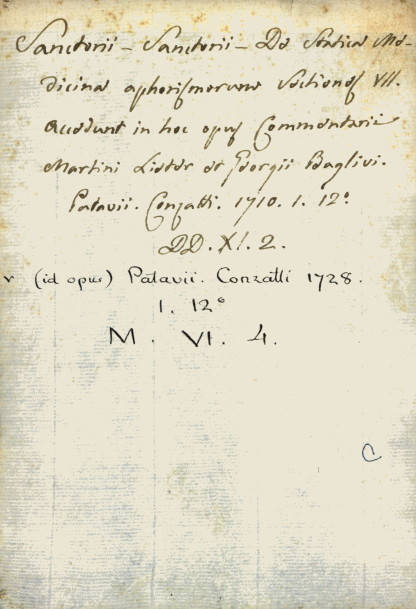 Sanctorii - Sanctorii - De Statica Me-
dicina aphorismorum Sectiones VII.
Accedunt in hoc opus Commentarii
Martini Lister et Georgii Baglivi.
Patavii. Conzatti. 1710. 1. 12°
DD. XI. 2.
v (id opus) Patavii. Conzatti 1728.
1. 12°
M. VI. 4.
C